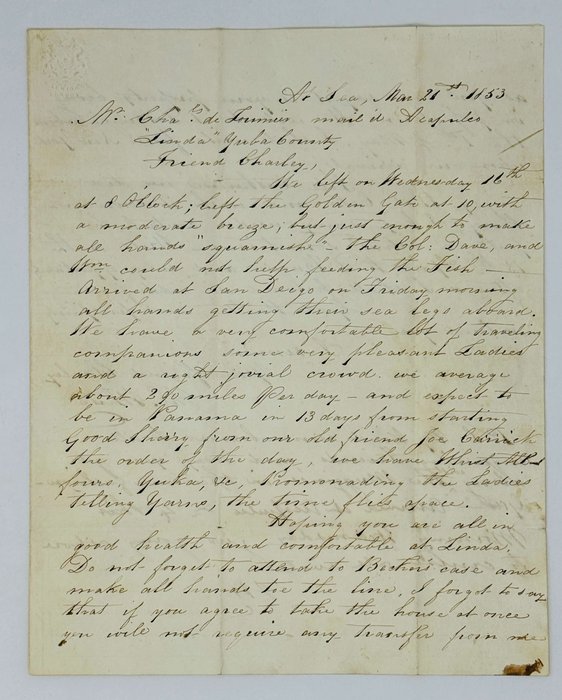 At Sea, Mar 21st 1853
Mr. Chas. de mail'd Acapulco
"Linda" Yuba County
Friend Charley,
We left on Wednesday 16th
at 8 O'Clock; left the Golden Gate at 10, with
a moderate breeze, but just enough to make
all hands "squamish" - the Col: Dave, and
Wm could not help feeding the Fish -
Arrived at San Deigo on Friday morning
all hands getting their sea legs aboard.
We have a very comfortable lot of traveling
companions, some very pleasant Ladies
and a right jovial crowd. we average
about 290 miles per day - and expect to
be in Panama in 13 days from starting
Good Sherry from our old friend Joe
the order of the day, we have Whist, All
fours, Yuka, &c, Promonading the Ladies
telling Yarns, the time flies apace.
Hoping you are all in
good health and comfortable at Linda.
Do not forget to attend to case and
make all hands toe the line. I forgot to say
that if you agree to take the house at once
you will not require any transfer from me